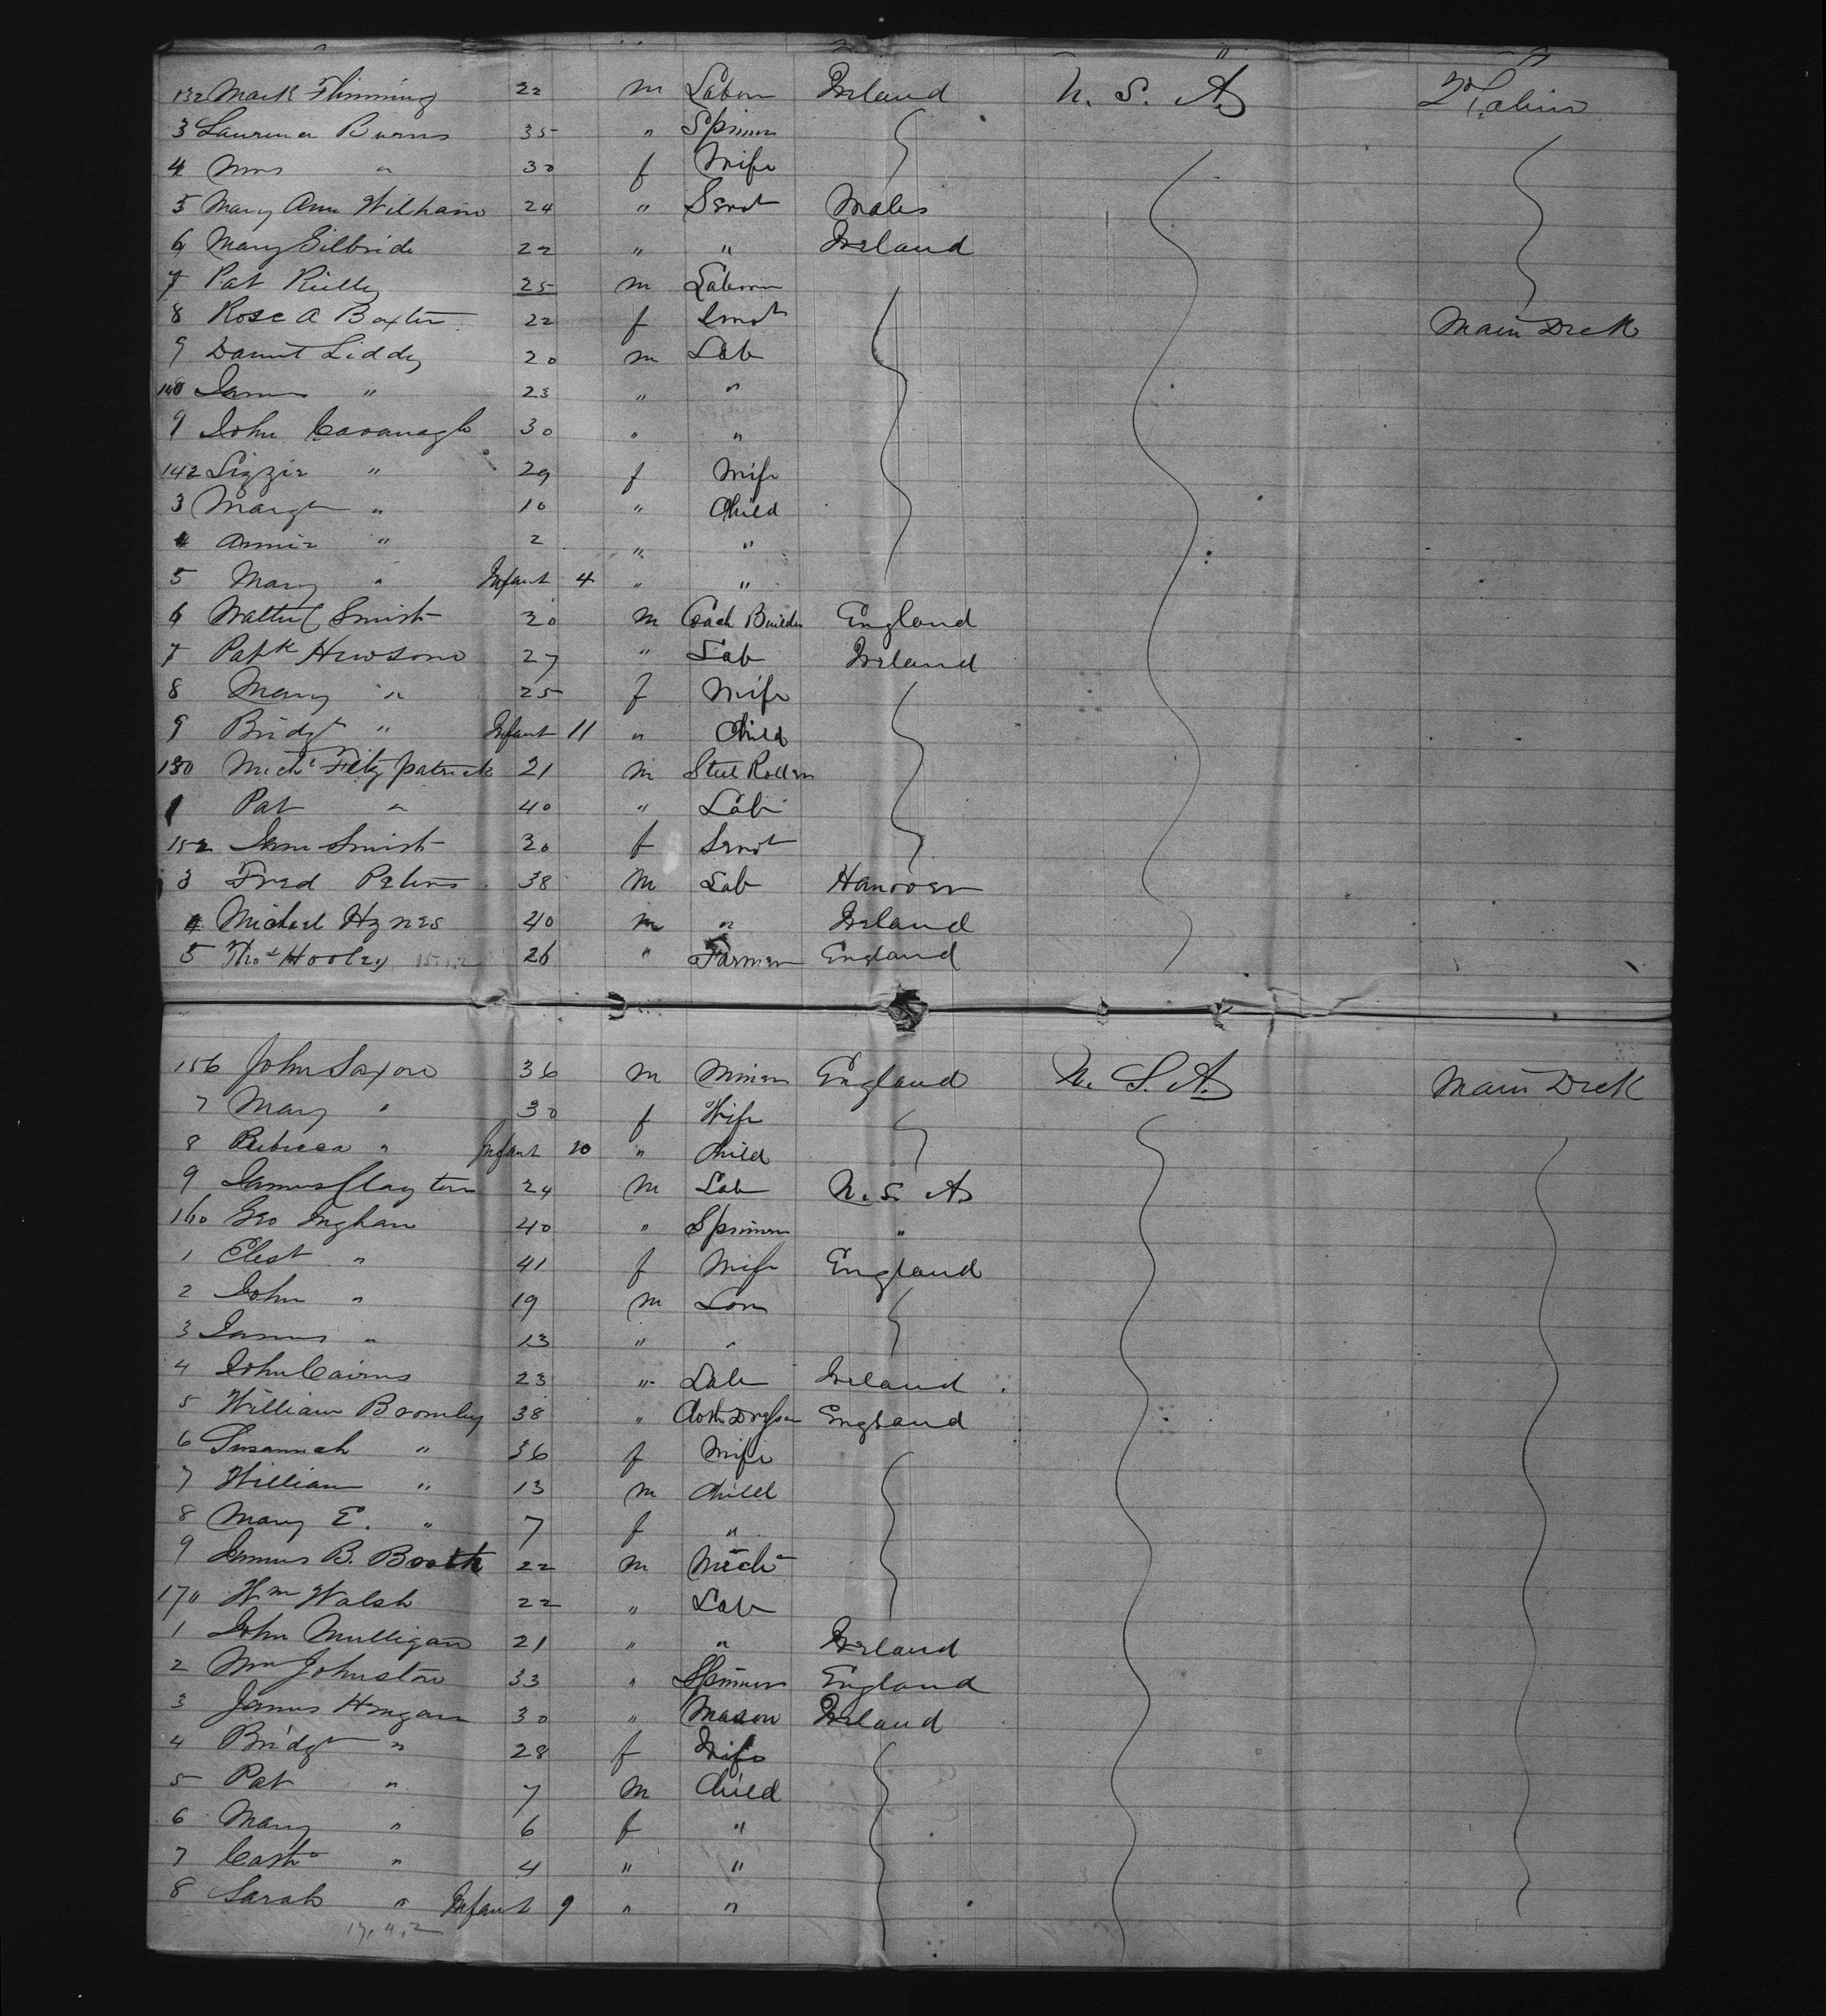 132 Mark Flimming 22 m Labour Ireland U. S. A. 2d Cabin
3 Laurence Burns 35 " Spinner
4 Mrs " 30 f Wife
5 Mary Ann William 24 " Servt Wales
6 Mary Gilbride 22 " " Ireland
7 Pat Reilly 25 m Labour
8 Rose A Baxter 22 f Servt Main Deck
9 Daniel Liddy 20 m Lab
140 James " 23 " "
1 John Cavanagh 30 " "
142 Lizzie " 29 f Wife
3 Margt " 10 " Child
4 Annie " 2 " "
5 Mary " Infant 4 " "
6 Walter Smith 30 m Coach Builder England
7 Patk Hewson 27 " Lab Ireland
8 Mary " 25 f Wife
9 Bridgt " Infant 11 " Child
150 Michl Fitzpatrick 21 m Steel Roller
1 Pat " 40 " Lab
152 Jane Smith 20 f Servt
3 Fred Peters 38 m Lab Hanover
4 Michael Hynes 40 m " Ireland
5 Thos Hooley 26 " Farmer England
156 John Saxon 36 m Miner England U. S. A. Main Deck
7 Mary " 30 f Wife
8 Rebecca " Infant 10 " Child
9 James Clayton 24 m Lab U. S. A
160 Geo Ingham 40 " Spinner "
1 " 41 f Wife England
2 John " 19 m Son
3 James " 13 " "
4 John Cairns 23 " Lab Ireland
5 William Bromley 38 " Cloth Dresser England
6 Susannah " 36 f Wife
7 William " 13 m Child
8 Mary E. " 7 f "
9 James B. Booth 22 m Mech
170 Wm Walsh 22 " Lab
1 John Mulligan 21 " " Ireland
2 Wm Johnston 33 " Spinner England
3 James Horgan 30 " Mason Ireland
4 Bridgt " 28 f Wife
5 Pat " 7 m Child
6 Mary " 6 f "
7 Cathe " 4 " "
8 Sarah " Infant 9 " "
17, 4, 2